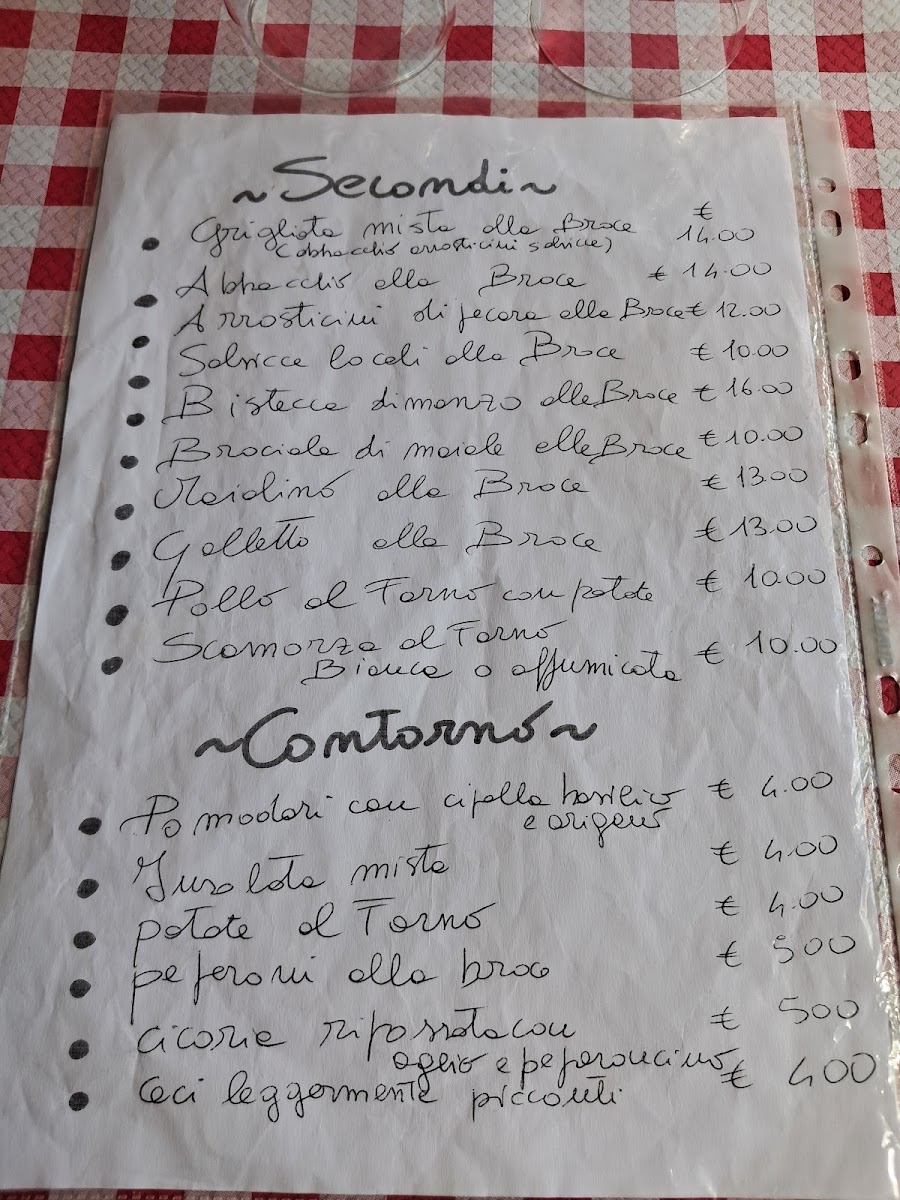 ~Secondi~
Grigliata mista alla Brace € 14.00
(abbacchio arrosticini salsicce)
Abbacchio alla Brace € 14.00
Arrosticini di pecora alla Brace € 12.00
Salsicce locali alla Brace € 10.00
Bistecca di manzo alla Brace € 16.00
Braciola di maiale alla Brace € 10.00
alla Brace € 13.00
Galletto alla Brace € 13.00
Pollo al Forno con patate € 10.00
Scamorza al Forno
Bianca o affumicata € 10.00
~Contorno~
Pomodori con cipolla basilico € 4.00
e origano
Insalata mista € 4.00
patate al Forno € 4.00
peperoni alla brace € 500
cicoria ripassata con € 500
aglio e peperoncino
Ceci leggermente piccanti € 400